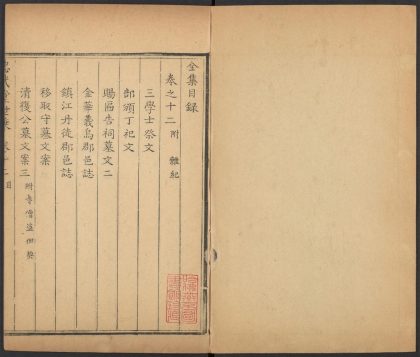 全集目錄
卷之十二 附 雜紀
三學士祭文
部頒丁祀文
賜匾告祠墓文二
金華義烏郡邑誌
鎮江丹徒郡邑誌
移取守墓文案
清復公墓文案三 附寺僧盜佃契